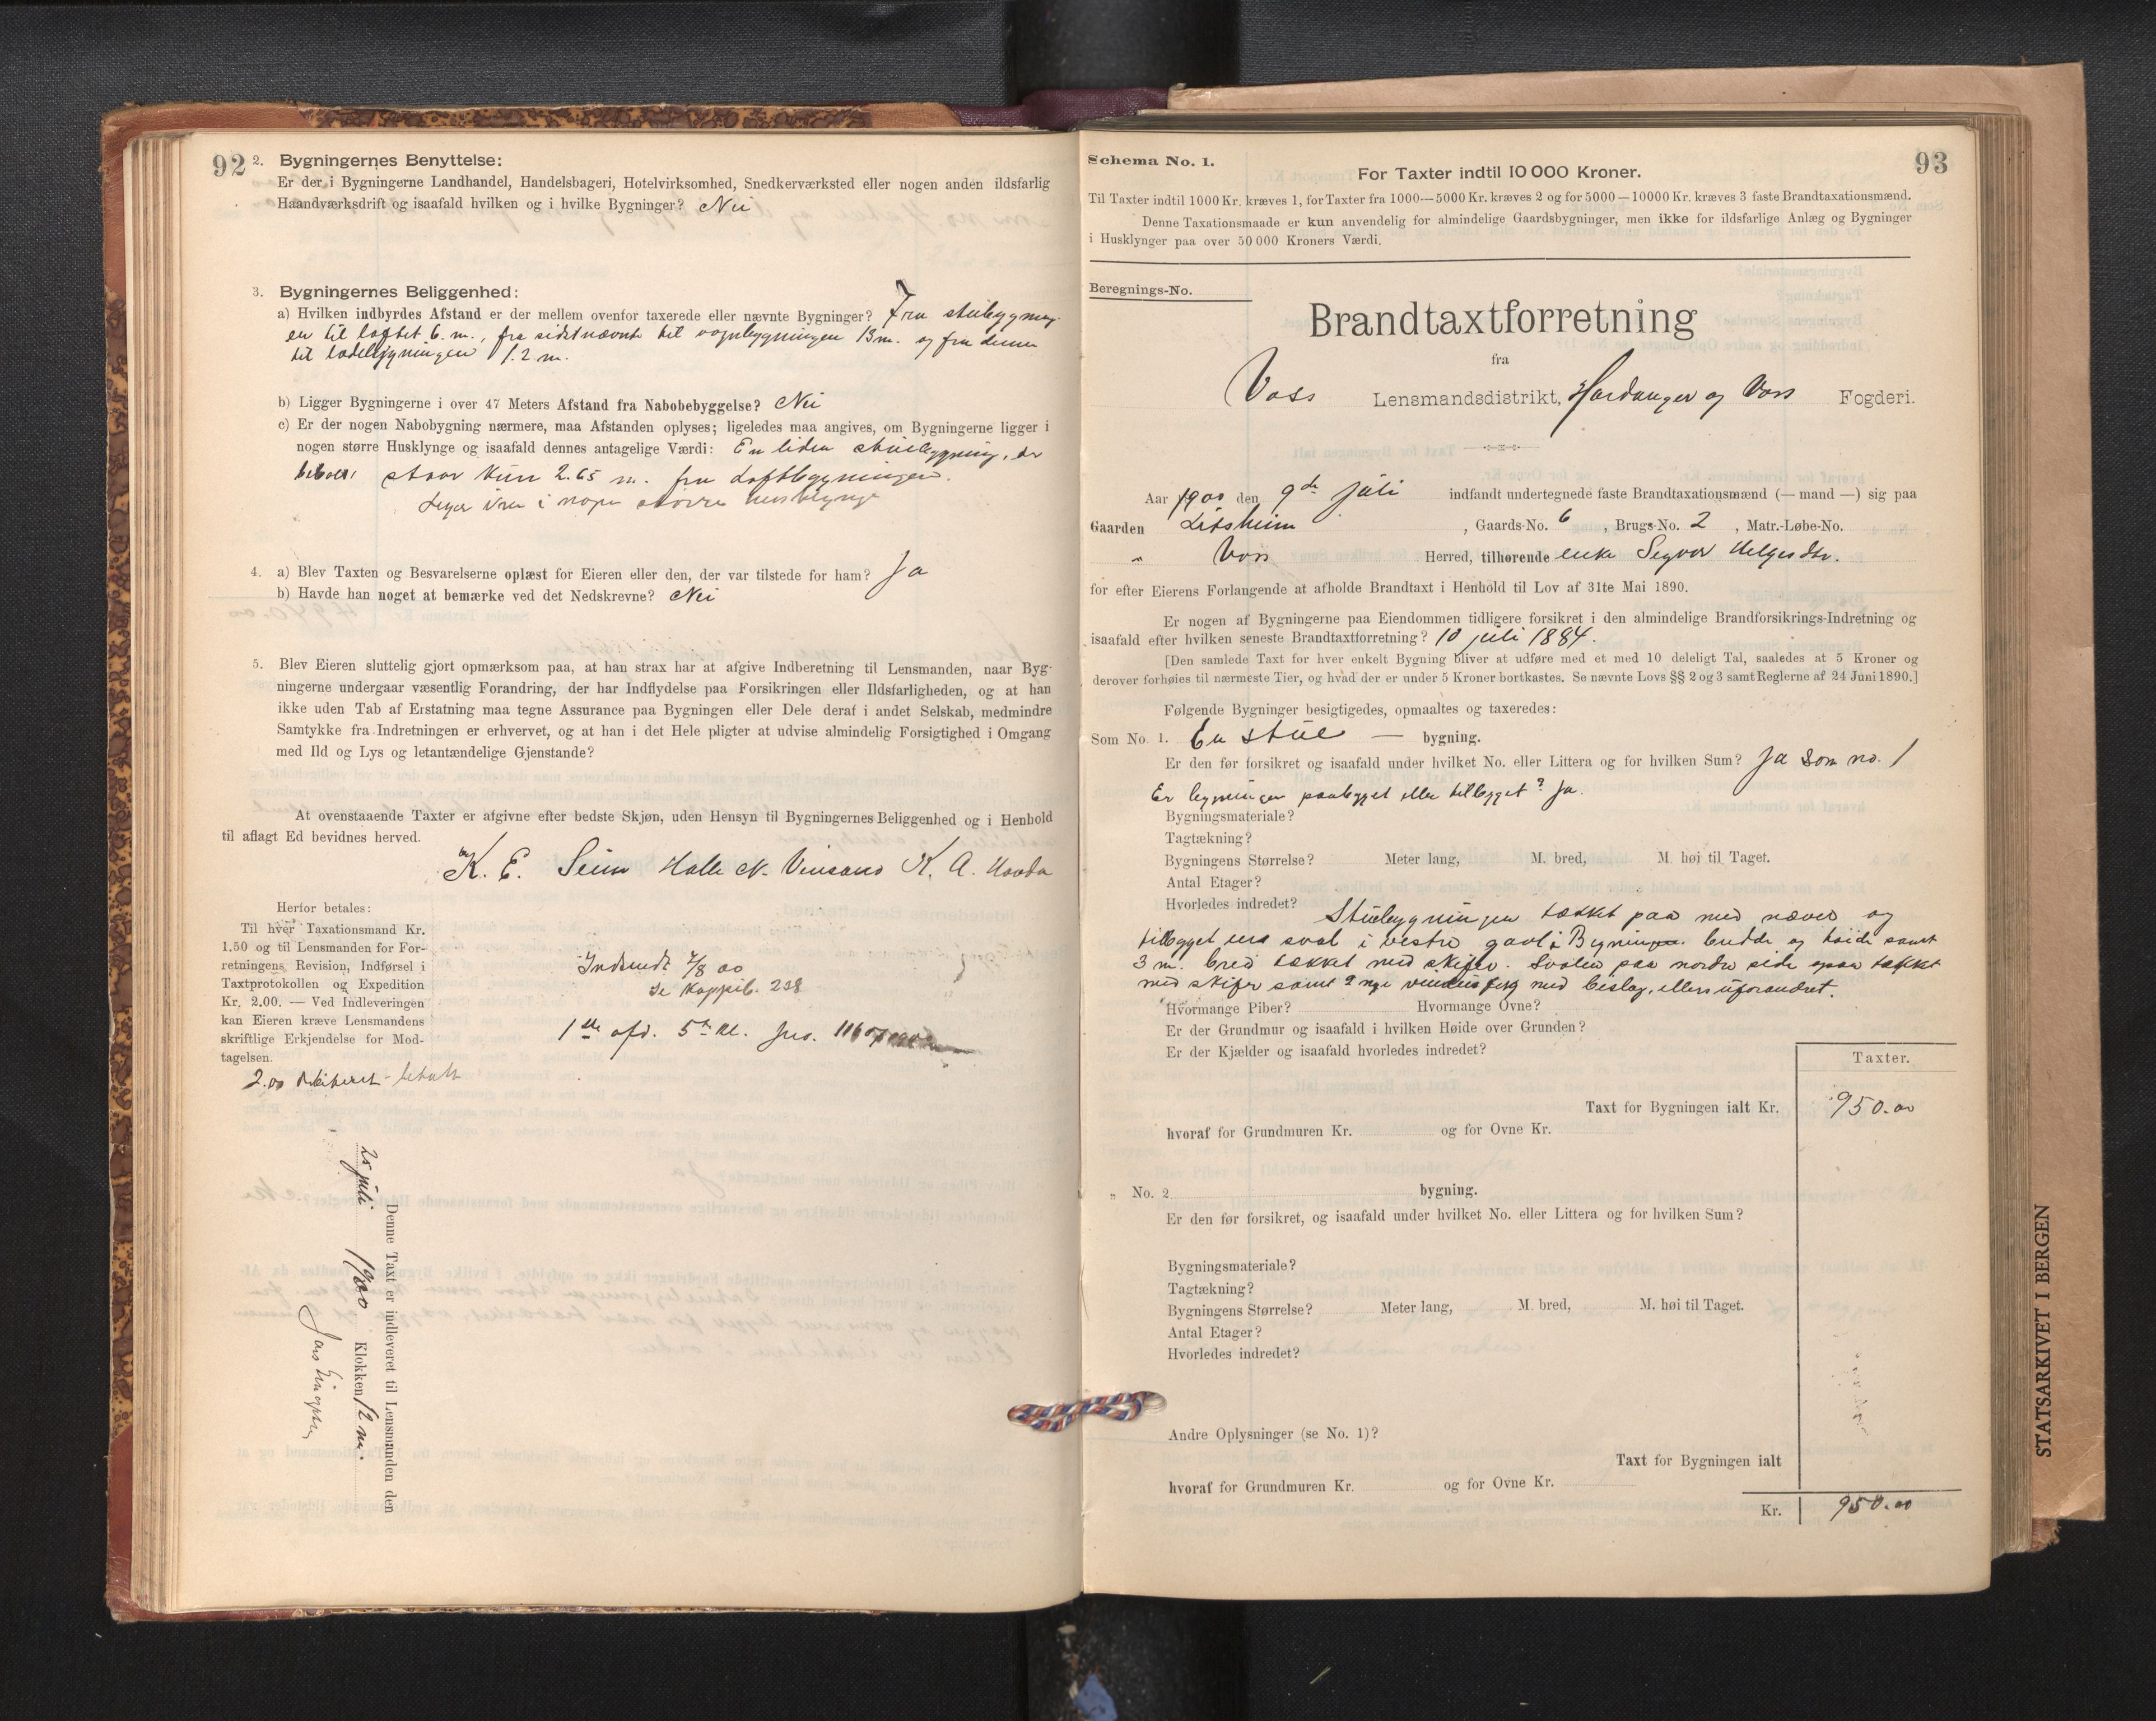 92
2. Bygningernes Benyttelse:
Er der i Bygningerne Landhandel, Handelsbageri, Hotelvirksomhed, Snedkerværksted eller nogen anden ildsfarlig
Haandværksdrift og isaafald hvilken og i hvilke Bygninger? Nei
3. Bygningernes Beliggenhed:
a) Hvilken indbyrdes Afstand er der mellem ovenfor taxerede eller nævnte Bygninger? Fra stubygning-
en til loftet 6. m., fra sidstnævnte til vognbygningen 13 m. og fra denne
til ladebygningen 1.2 m.
b) Ligger Bygningerne i over 47 Meters Afstand fra Nabobebyggelse? Nei
c) Er der nogen Nabobygning nærmere, maa Afstanden oplyses; ligeledes maa angives, om Bygningerne ligger i
nogen større Husklynge og isaafald dennes antagelige Værdi: En liden stuebygning, der
staar kun 2.65 m. fra Loftbygningen.
Ligger i større husklynge
4. a) Blev Taxten og Besvarelserne oplæst for Eieren eller den, der var tilstede for ham? Ja
b) Havde han noget at bemærke ved det Nedskrevne? Nei
5. Blev Eieren sluttelig gjort opmærksom paa, at han strax har at afgive Indberetning til Lensmanden, naar Byg-
ningerne undergaar væsentlig Forandring, der har Indflydelse paa Forsikringen eller Ildsfarligheden, og at han
ikke uden Tab af Erstatning maa tegne Assurance paa Bygningen eller Dele deraf i andet Selskab, medmindre
Samtykke fra Indretningen er erhvervet, og at han i det Hele pligter at udvise almindelig Forsigtighed i Omgang
med Ild og Lys og letantændelige Gjenstande?
At ovenstaaende Taxter er afgivne efter bedste Skjøn, uden Hensyn til Bygningernes Beliggenhed og i Henhold
til aflagt Ed bevidnes herved.
K. E. Seim Halle N. Vinsand K. A. Hovda
Herfor betales:
Til hver Taxationsmand Kr.
1.50 og til Lensmanden for For-
retningens Revision, Indførsel i
Taxtprotokollen og Expedition
Kr. 2.00. — Ved Indleveringen
kan Eieren kræve Lensmandens
skriftlige Erkjendelse for Mod-
tagelsen.
2.00 betalt
Indsendt 7/8 00
Se Kopib. 238
1ste afd. 5te kl.
Denne Taxt er indleveret til Lensmanden den
25 juli 1900 Klokken 12 m.
93
Schema No. 1.
For Taxter indtil 10 000 Kroner.
Til Taxter indtil 1000 Kr. kræves 1, for Taxter fra 1000—5000 Kr. kræves 2 og for 5000—10000 Kr. kræves 3 faste Brandtaxationsmænd.
Denne Taxationsmaade er kun anvendelig for almindelige Gaardsbygninger, men ikke for ildsfarlige Anlæg og Bygninger
i Husklynger paa over 50 000 Kroners Værdi.
Beregnings-No.
Brandtaxtforretning
fra
Voss Lensmandsdistrikt, Hardanger og Voss Fogderi.
Aar 1900 den 9de juli indfandt undertegnede faste Brandtaxationsmænd (— mand —) sig paa
Gaarden Lidsheim, Gaards-No. 6, Brugs-No. 2, Matr.-Løbe-No.
„ Voss Herred, tilhørende enke Segvor Helgesdtr.
for efter Eierens Forlangende at afholde Brandtaxt i Henhold til Lov af 31te Mai 1890.
Er nogen af Bygningerne paa Eiendommen tidligere forsikret i den almindelige Brandforsikrings-Indretning og
isaafald efter hvilken seneste Brandtaxtforretning? 10 juli 1884.
[Den samlede Taxt for hver enkelt Bygning bliver at udføre med et med 10 deleligt Tal, saaledes at 5 Kroner og
derover forhøies til nærmeste Tier, og hvad der er under 5 Kroner bortkastes. Se nævnte Lovs §§ 2 og 3 samt Reglerne af 24 Juni 1890.]
Følgende Bygninger besigtigedes, opmaaltes og taxeredes:
Som No. 1. En stue — bygning.
Er den før forsikret og isaafald under hvilket No. eller Littera og for hvilken Sum? Ja som no. 1
Er bygningen paabygget eller tilbygget? Ja.
Bygningsmateriale?
Tagtækning?
Bygningens Størrelse? Meter lang, M. bred, M. høi til Taget.
Antal Etager?
Hvorledes indredet? Stuebygningen tækket paa med næver og
tilbygget en sval i vestre gavl i Bygningens bredde og høide samt
3 m. bred tækket med skifer. Svalen paa nordre side tækket
med skifer samt 2 nye med beslag, ellers uforandret.
Hvormange Piber? Hvormange Ovne?
Er der Grundmur og isaafald i hvilken Høide over Grunden?
Er der Kjælder og isaafald hvorledes indredet?
Taxter.
Taxt for Bygningen ialt Kr. 950.00
hvoraf for Grundmuren Kr. og for Ovne Kr.
„ No. 2 bygning.
Er den før forsikret, og isaafald under hvilket No. eller Littera og for hvilken Sum?
Bygningsmateriale?
Tagtækning?
Bygningens Størrelse? Meter lang, M. bred, M. høi til Taget.
Antal Etager?
Hvorledes indredet?
Andre Oplysninger (se No. 1)?
Taxt for Bygningen ialt
hvoraf for Grundmuren Kr. og for Ovne Kr.
Kr. 950.00
STATSARKIVET I BERGEN